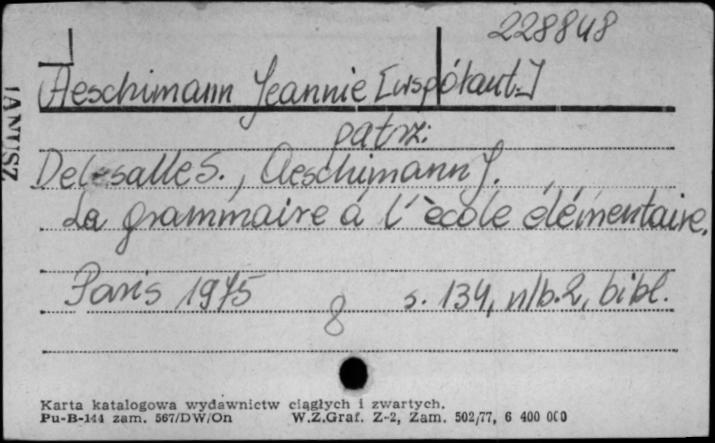 228848
Aeschimann Jeannie [współaut.]
patrz:
Delesalle S., Aeschimann J.
La grammaire á l'ècole élémentaire.
Paris 1975 8 s. 134, nlb.2, bibl.
JANUSZ
Karta katalogowa wydawnictw ciągłych i zwartych.
Pu-B-144 zam. 567/DW/On W.Z.Graf. Z-2, Zam. 502/77, 6 400 000